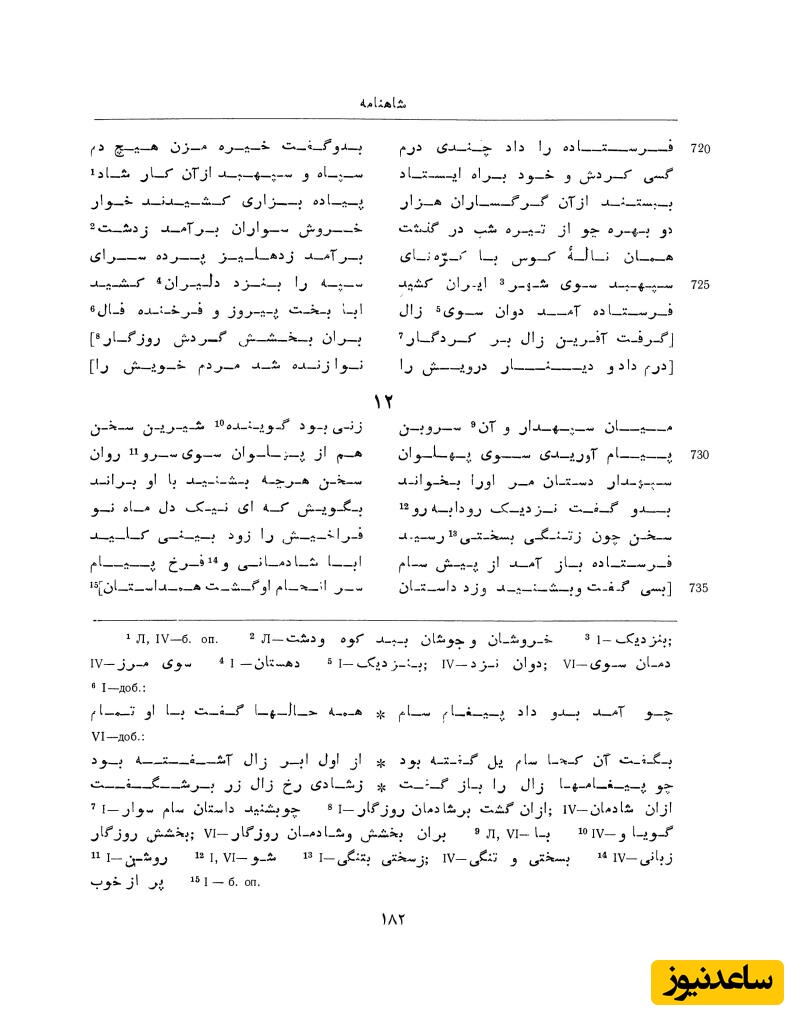 شاهنامه
720 فرستاده را داد چندی درم بدوگفت خیره مزن هیچ دم
گسی کردش و خود براه ایستاد سپاه و سپهبد ازآن کار شاد¹
ببستند ازآن گرگساران هزار پیاده بزاری کشیدند خوار
دو بهره چو از تیره شب در گذشت خروش سواران برآمد زدشت²
همان نالهٔ کوس با کرّه نای برآمد زدهلیز پرده سرای
725 سپهبد سوی شهر³ ایران کشید سپه را بنزد دلیران⁴ کشید
فرستاده آمد دوان سوی⁵ زال ابا بخت پیروز و فرخنده فال⁶
[گرفت آفرین زال بر کردگار⁷ بران بخشش گردش روزگار⁸]
[درم داد و دینار درویش را نوازنده شد مردم خویش را]
۱۲
میان سپهدار و آن⁹ سروبن زنی بود گوینده¹⁰ شیرین سخن
730 پیام آوریدی سوی پهلوان هم از پهلوان سوی سرو¹¹ روان
سپهدار دستان مر اورا بخواند سخن هرچه بشنید با او براند
بدو گفت نزدیک رودابه رو¹² بگویش که ای نیک دل ماه نو
سخن چون زتنگی بسختی¹³ رسید فراخیش را زود بینی کلید
فرستاده باز آمد از پیش سام ابا شادمانی و¹⁴ فرخ پیام
735 [بسی گفت وبشنید وزد داستان سر انجام اوگشت همداستان]¹⁵
¹ Л, IV—б. оп. ² Л—خروشان و جوشان ببد کوه ودشت ³ I—بنزدیک;
IV—سوی مرز ⁴ I—دهستان ⁵ I—بنزدیک; IV—دوان نزد; VI—دمان سوی
⁶ I—доб.:
چو آمد بدو داد پیغام سام * همه حالها گفت با او تمام
VI—доб.:
بگفت آن کجا سام یل گفته بود * از اول ابر زال آشفته بود
چو پیغامها زال را باز گفت * زشادی رخ زال زر برشگفت
⁷ I—چوبشنید داستان سام سوار ⁸ I—ازان گشت برشادمان روزگار; IV—ازان شادمان
بخشش روزگار; VI—بران بخشش وشادمان روزگار ⁹ Л, VI—با ¹⁰ IV—گویا و
¹¹ I—روشن ¹² I, VI—شو ¹³ I—زسختی بتنگی; IV—بسختی و تنگی ¹⁴ IV—زبانی
پر از خوب ¹⁵ I — б. оп.
۱۸۲
ساعدنیوز